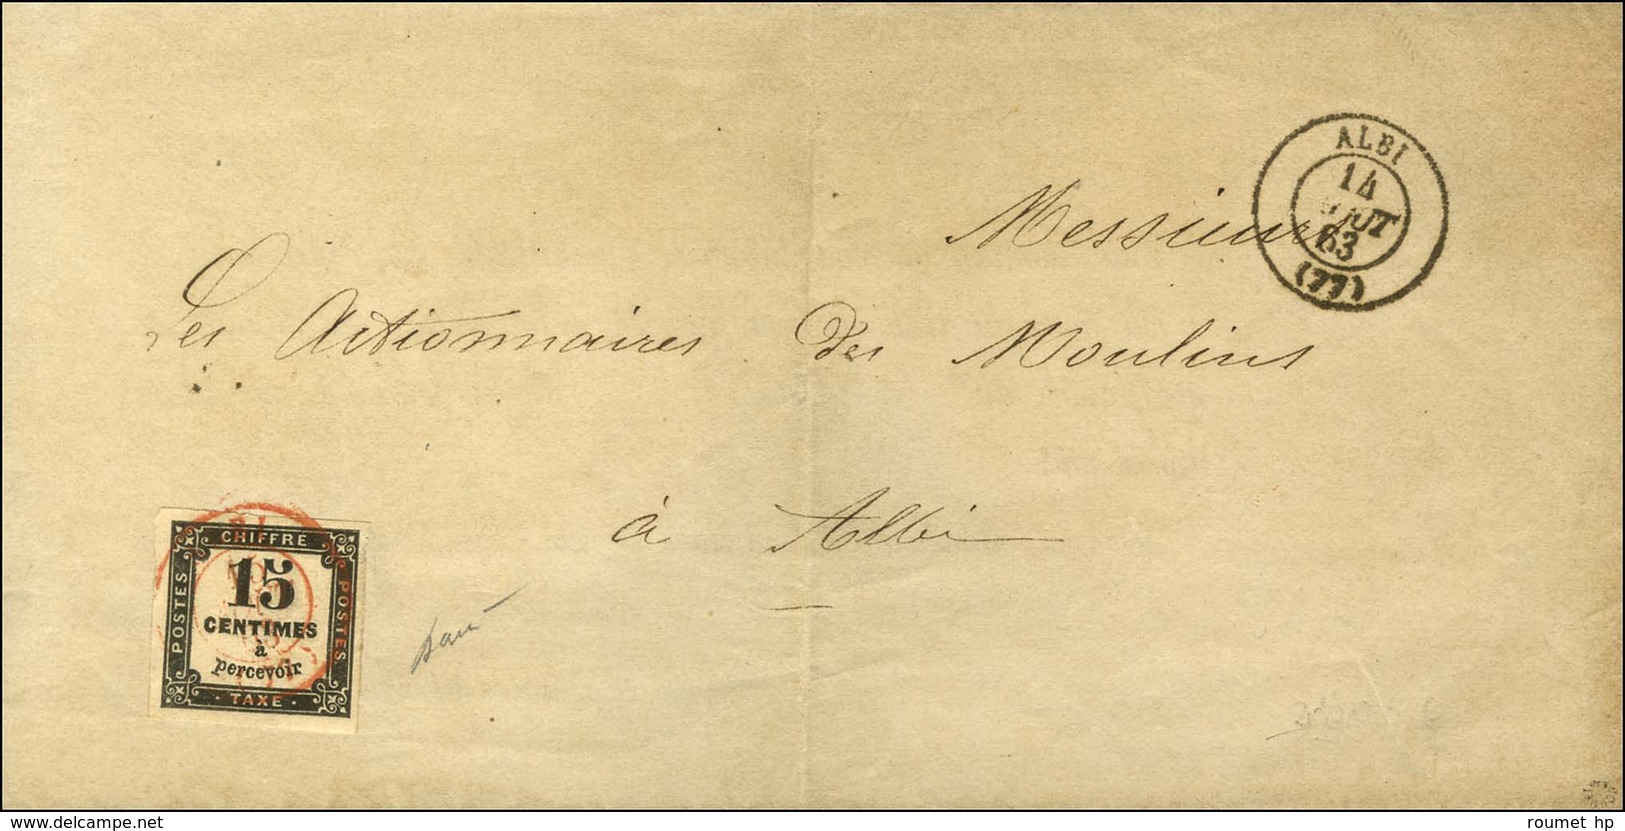 ALBI
14
AOUT
63
(77)
Messieurs
Les Actionnaires des Moulins
à Albi
CHIFFRE
POSTES
15
CENTIMES
à
percevoir
POSTES
· TAXE ·
delcampe.net
roumet hp